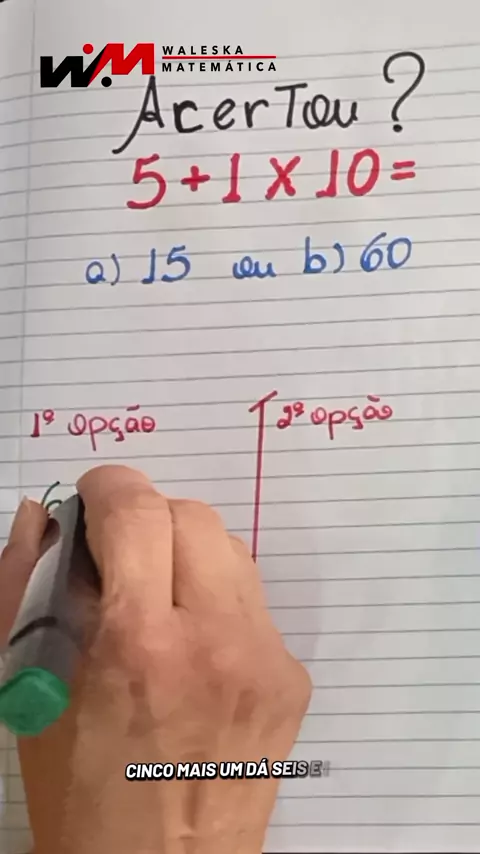 WM WALESKA
MATEMÁTICA
Acertou?
5+1 X 10=
a) 15 ou b) 60
1ª opção
2ª opção
6
CINCO MAIS UM DÁ SEIS E